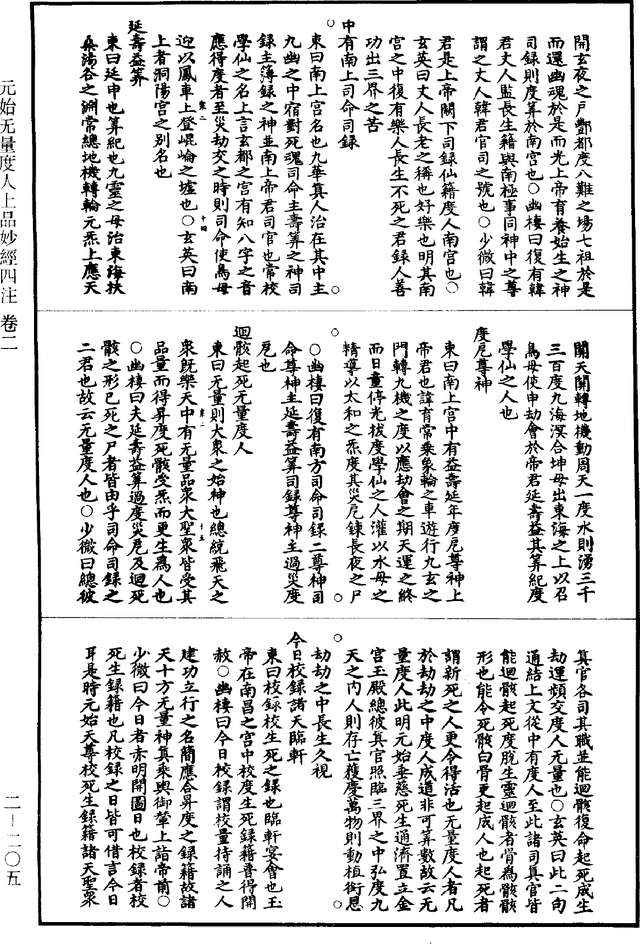 開玄夜之戶酆都度八難之場七祖於是
而還幽魂於是而光上帝育養始生之神
司録則度算於南宮也○幽棲曰復有韓
君丈人監長生籍與南極事同神中之尊
謂之丈人韓君官司之號也○少微曰韓
君是上帝闕下司録仙籍度人南宮也○
玄英曰丈人長老之稱也好樂也明其南
宮之中復有樂人長生不死之君録人善
功出三界之苦
中有南上司命司録
東曰南上宮名也九華真人治在其中主
九幽之中宿對死魂司命主壽算之神司
録主簿録之神並南上帝君司官也常校
學仙之名上言玄都之宮有知八字之音
應得度者至災劫交之時則司命使鳥母
迎以鳳車上登崐崙之墟也○玄英曰南
上者洞陽宮之別名也
延壽益算
東曰延申也算紀也九靈之母治東海扶
桑湯谷之淵常總地機轉輪元炁上應天
關天關轉地機動周天一度水則湧三千
三百度九海溟合坤母出東海之上以召
鳥母使申劫會於帝君延壽益其算紀度
學仙之人也
度厄尊神
東曰南上宮中有益壽延年度厄尊神上
帝君也諱育常乘象輪之車遊行九玄之
門轉九機之度以應劫會之期天運之終
而日量停光拔度學仙之人灌以水母之
精導以太和之炁度其災厄鍊長夜之尸
○幽棲曰復有南方司命司録二尊神司
命尊神主延壽益算司録尊神主過災度
厄也
迴骸起死无量度人
東曰无量則大衆之始神也總統飛天之
衆旣樂天中有无量品衆大聖衆皆受其
品量而得昇度死骸受炁而更生爲人也
○幽棲曰夫延壽益算過度災厄及迴死
骸之形已死之尸者皆由乎司命司録之
二君也故云无量度人也○少微曰總彼
真官各司其職並能迴骸復命起死成生
劫運頻交度人无量也○玄英曰此二句
通結上文從中有度人至此諸司真官皆
能迴骸起死度脫生靈迴骸者骨爲骸骸
形也能令死骸白骨更起成人也起死者
謂新死之人更令得活也无量度人者凡
於劫劫之中度人成道非可算數故云无
量度人此明元始垂慈死生通濟置立金
宮玉殿總彼真官照臨三界之中弘度九
天之内人則存亡獲慶萬物則動植銜恩
劫劫之中長生久視
今日校録諸天臨軒
東曰校録校生死之録也臨軒宴會也玉
帝在南昌之宮中校度生死録籍普得開
赦○幽棲曰今日校録謂校量持誦之人
建功立行之名簡應合昇度之録籍故諸
天十方无量神真乘輿御輦上詣帝前○
少微曰今日者赤明開圖日也校録者校
死生録籍也凡校録之日皆可借言今日
耳是時元始天尊校死生録籍諸天聖衆
元始无量度人上品妙經四注 卷二
二—二〇五